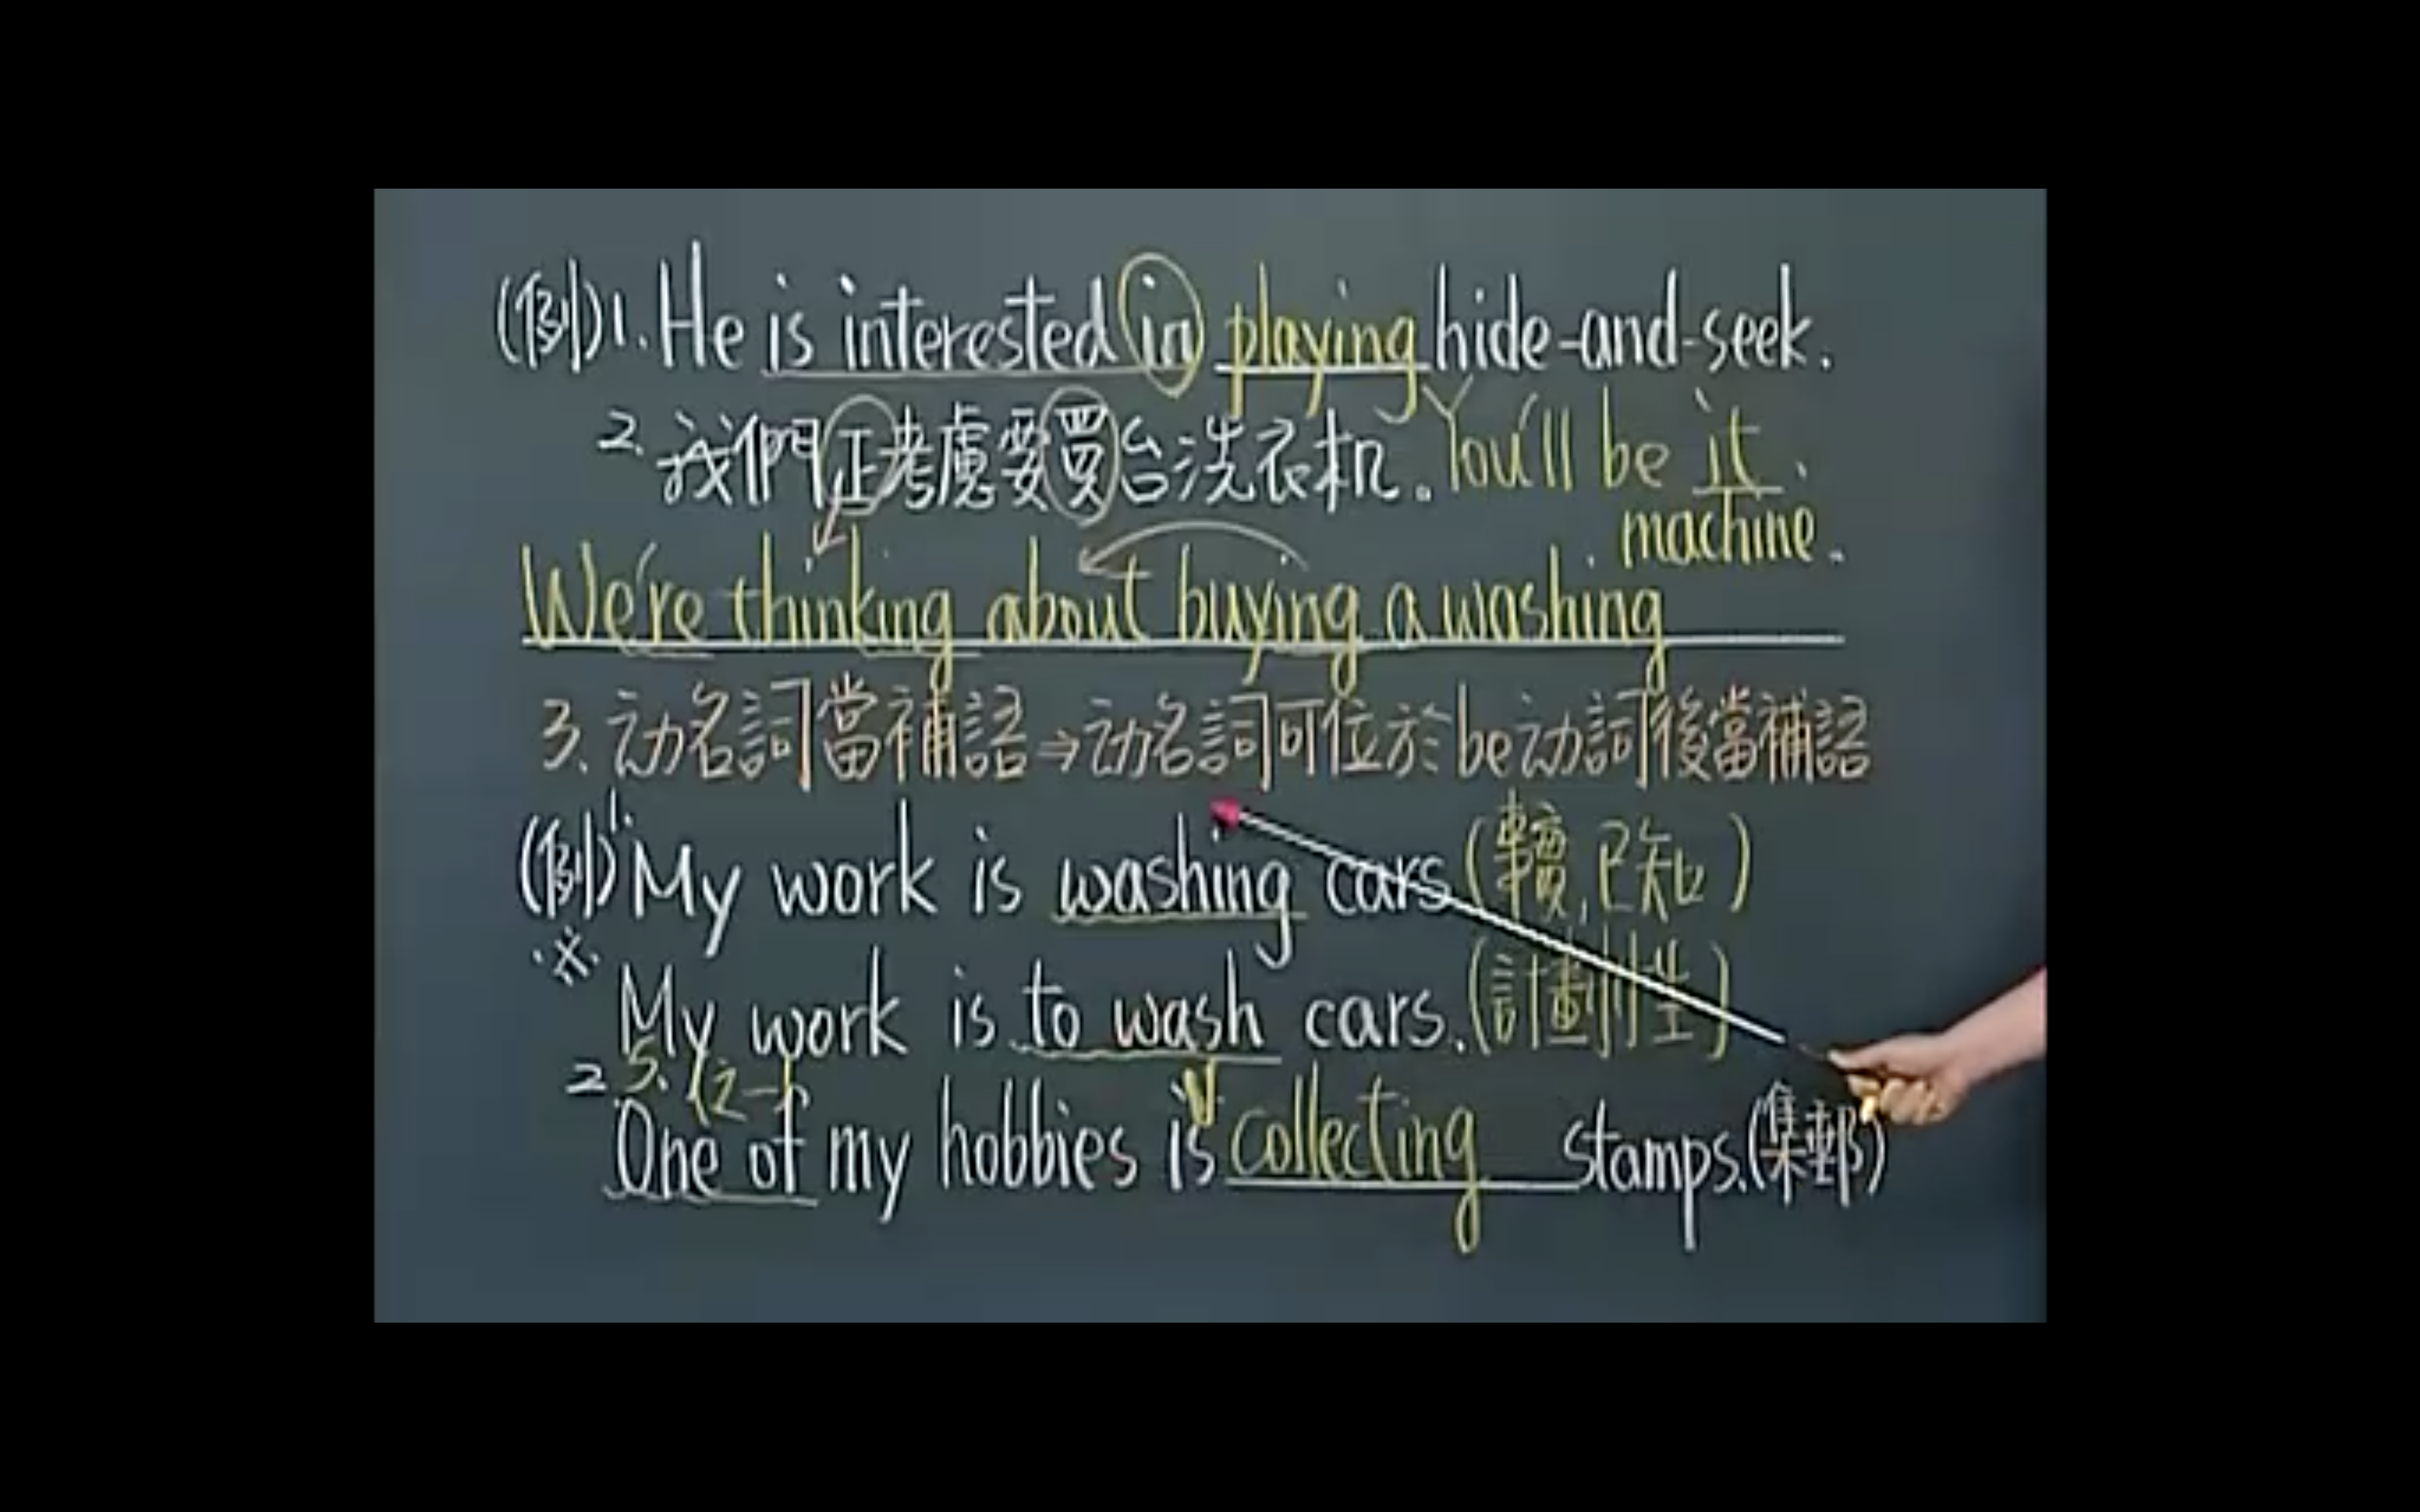 (例)1. He is interested in playing hide-and-seek.
2. 我們正考慮要買台洗衣机。You'll be it.
machine.
We're thinking about buying a washing
3. 动名詞當補語⇒动名詞可位於be动詞後當補語
(例)1. My work is washing cars (經驗,已知)
※ My work is to wash cars. (計劃性)
S. (之一) V
2. One of my hobbies is collecting stamps. (集郵)